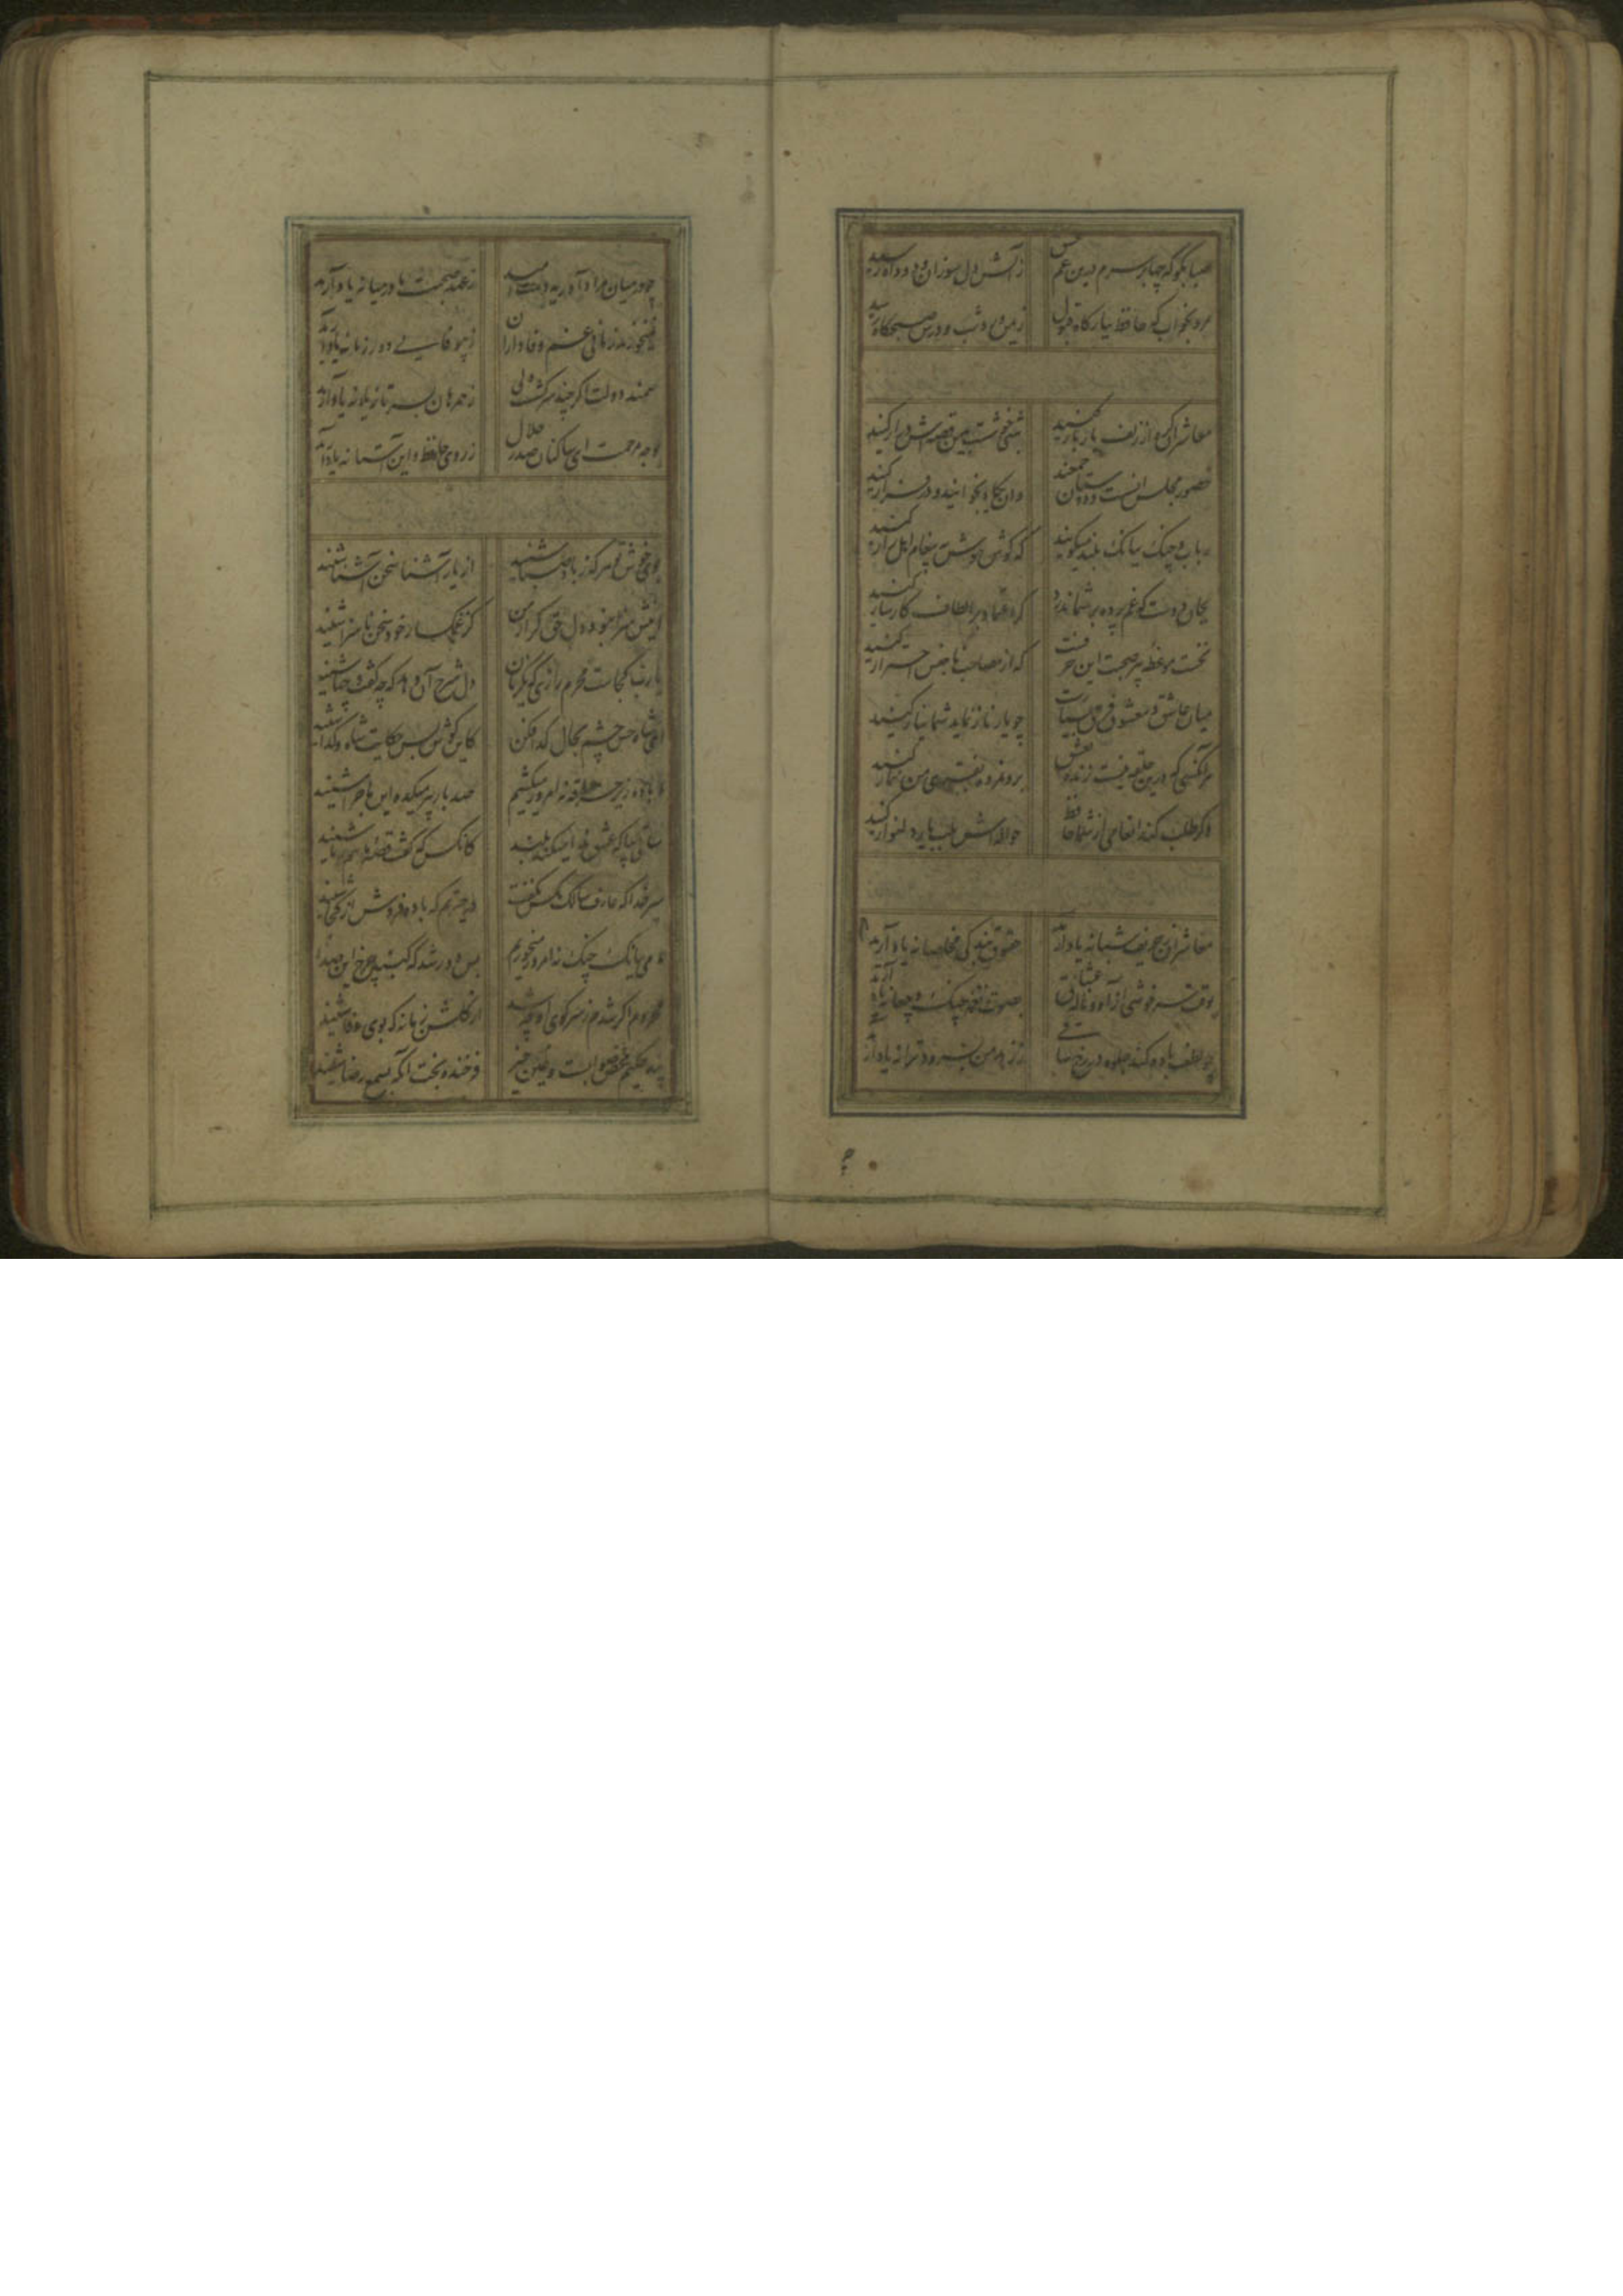 صبا بگو که چها بر سرم درین غم عشق
ز آتش دل سوزان و دود و آه رسید
مرو بخواب که حافظ ببارگاه قبول
ز یمن ورد شب و درس صبحگاه رسید
معاشران گره از زلف یار باز کنید
شبی خوشست بدین قصه‌اش دراز کنید
حضور مجلس انست و دوستان جمعند
وان یکاد بخوانید و در فراز کنید
رباب و چنگ ببانگ بلند میگویند
که گوش هوش به پیغام اهل راز کنید
بجان دوست که غم پرده بر شما ندرد
گر اعتماد بر الطاف کارساز کنید
نخست موعظه پیر صحبت این حرفست
که از مصاحب ناجنس احتراز کنید
میان عاشق و معشوق فرق بسیارست
چو یار ناز نماید شما نیاز کنید
هر آنکسی که درین حلقه نیست زنده بعشق
برو نمرده بفتوی من نماز کنید
وگر طلب کند انعامی از شما حافظ
حوالتش بلب یار دلنواز کنید
معاشران ز حریف شبانه یاد آرید
حقوق بندگی مخلصانه یاد آرید
بوقت سرخوشی از آه و ناله عشاق
بصوت نغمه چنگ و چغانه یاد آرید
چو لطف باده کند جلوه در رخ ساقی
ز من بسرود و ترانه یاد آرید
چو در میان مراد آورید دست امید
ز عهد صحبت ما در میانه یاد آرید
نمیخورند زمانی غم وفاداران
ز بیوفایی دور زمانه یاد آرید
سمند دولت اگر چند سرکش ولی
ز همرهان بسر تازیانه یاد آرید
بوجه مرحمت ای ساکنان صدر جلال
ز روی حافظ و این آستانه یاد آرید
بوی خوش تو هر که ز باد صبا شنید
از یار آشنا سخن آشنا شنید
اینش سزا نبود دل حق گزار من
کز غمگسار خود سخن ناسزا شنید
یا رب کجاست محرم رازی که یکزمان
دل شرح آن دهد که چه گفت و چها شنید
ای شاه حسن چشم بحال گدا فکن
کاین گوش بس حکایت شاه و گدا شنید
ما باده زیر خرقه نه امروز میکشیم
صد بار پیر میکده این ماجرا شنید
ساقی بیا که عشق ندا میکند بلند
کانکس که گفت قصه ما هم ز ما شنید
سر خدا که عارف سالک بکس نگفت
در حیرتم که باده فروش از کجا شنید
ما می ببانگ چنگ نه امروز میخوریم
بس دور شد که گنبد چرخ این صدا شنید
محروم اگر شدم ز سر کوی او چه شد
از گلشن زمانه که بوی وفا شنید
پند حکیم محض صوابست و عین خیر
فرخنده بخت آنکه بسمع رضا شنید